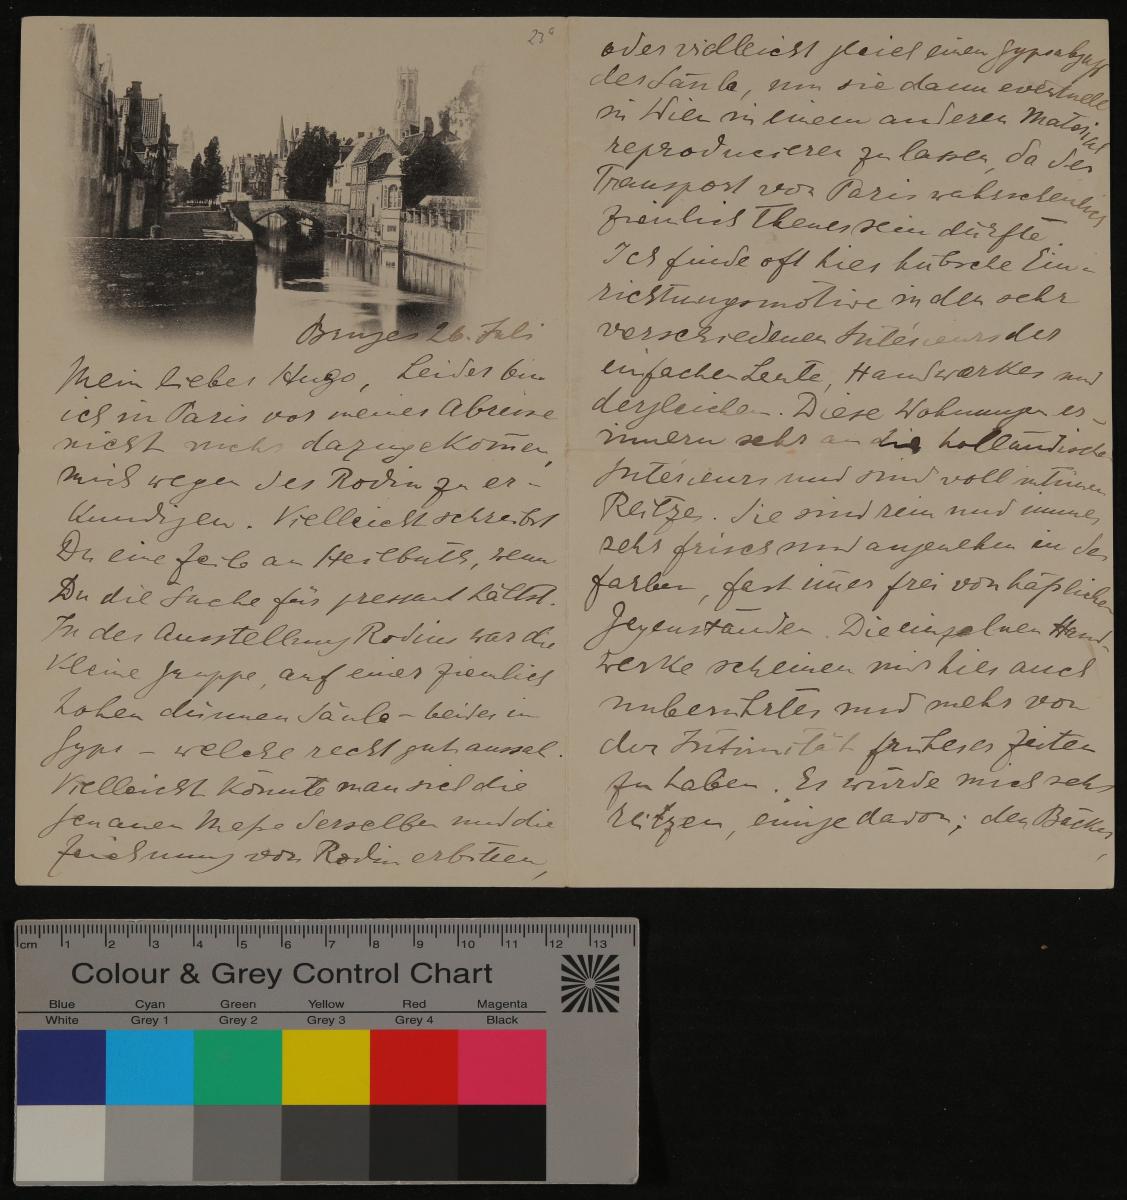 23a
Bruges 26. Juli
Mein lieber Hugo, Leider bin
ich in Paris vor meiner Abreise
nicht mehr dazugekomen,
mich wegen des Rodin zu er-
kundigen. Vielleicht schreibst
Du eine Zeile an Heilbuth, wenn
Du die Sache für pressant hältst.
In der Ausstellung Rodins war die
kleine Gruppe, auf einer ziemlich
hohen dünnen Säule – beides in
Gyps – welche recht gut aussah.
Vielleicht könnte man sich die
genauen Maße derselben und die
Zeichnung von Rodin erbitten,
oder vielleicht gleich einen Gypsabguß
der Säule, um sie dann eventuell
in Wien in einem anderen Material
reproducieren zu lassen, da der
Transport von Paris wahrscheinlich
ziemlich theuer sein dürfte.
Ich finde oft hier hübsche Ein-
richtungsmotive in den sehr
verschiedenen Intérieurs der
einfachen Leute, Handwerker und
dergleichen. Diese Wohnungen er-
innern sehr an die holländischen
Intérieurs und sind voll intimen
Reitzes. Sie sind rein und immer
sehr frisch und angenehm in den
Farben, fast imer frei von häßlichen
Gegenständen. Die einzelnen Hand-
werke scheinen mir hier auch
unberührter und mehr von
der Intimität früherer Zeiten
zu haben. Es würde mich sehr
reitzen, einige davon; den Bäcker,
cm 1 2 3 4 5 6 7 8 9 10 11 12 13
Colour & Grey Control Chart
Blue Cyan Green Yellow Red Magenta
White Grey 1 Grey 2 Grey 3 Grey 4 Black